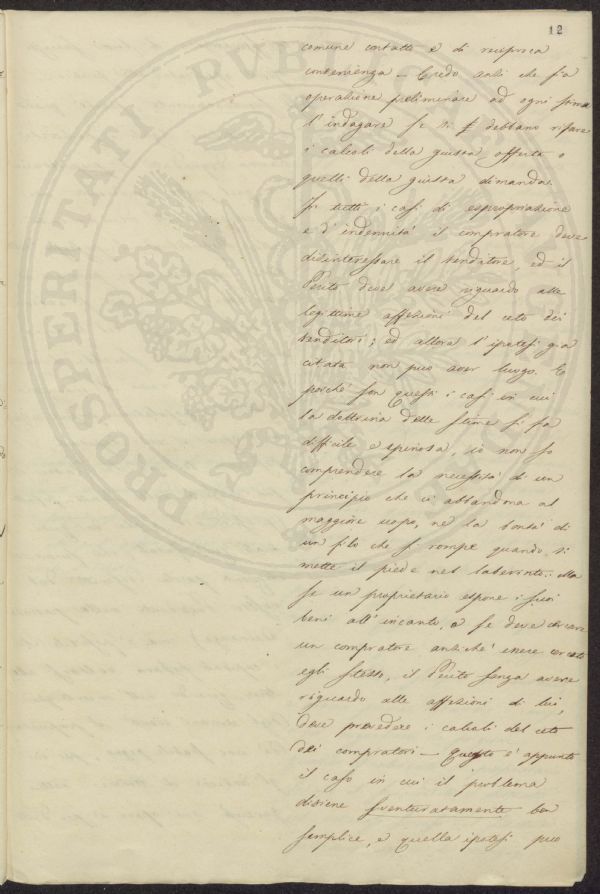 12
comune contatto e di reciproca
convenienza — Credo solo che sia
operazione preliminare ad ogni stima
l'indagare se si debbano rifare
i calcoli della giusta offerta o
quelli della giusta dimanda.
In tutti i casi di espropriazione
e d'indennità il compratore deve
disinteressare il venditore, ed il
Perito deve avere riguardo alle
legittime affezioni del ceto dei
venditori; ed allora l'ipotesi già
citata non può aver luogo. E
poiché son questi i casi in cui
la dottrina delle stime si fa
difficile e spinosa, io non so
comprendere la necessità di un
principio che ci abbandona al
maggiore uopo, né la bontà di
un filo che si rompe quando si
mette il piede nel laberinto. Ma
se un proprietario espone i suoi
beni all'incanto, o se deve cercare
un compratore anziché essere cercato
egli stesso, il Perito senza avere
riguardo alle affezioni di lui,
deve prevedere i calcoli del ceto
dei compratori — Questo è appunto
il caso in cui il problema
diviene sventuratamente ben
semplice, e quella ipotesi può
PROSPERITATI PUBLICAE